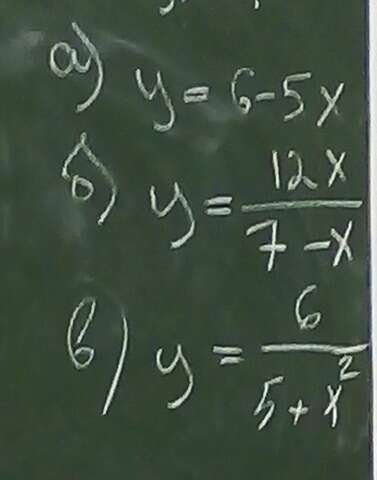 а) y = 6 - 5x
б) y = 12x / 7 - x
в) y = 6 / 5 + x²